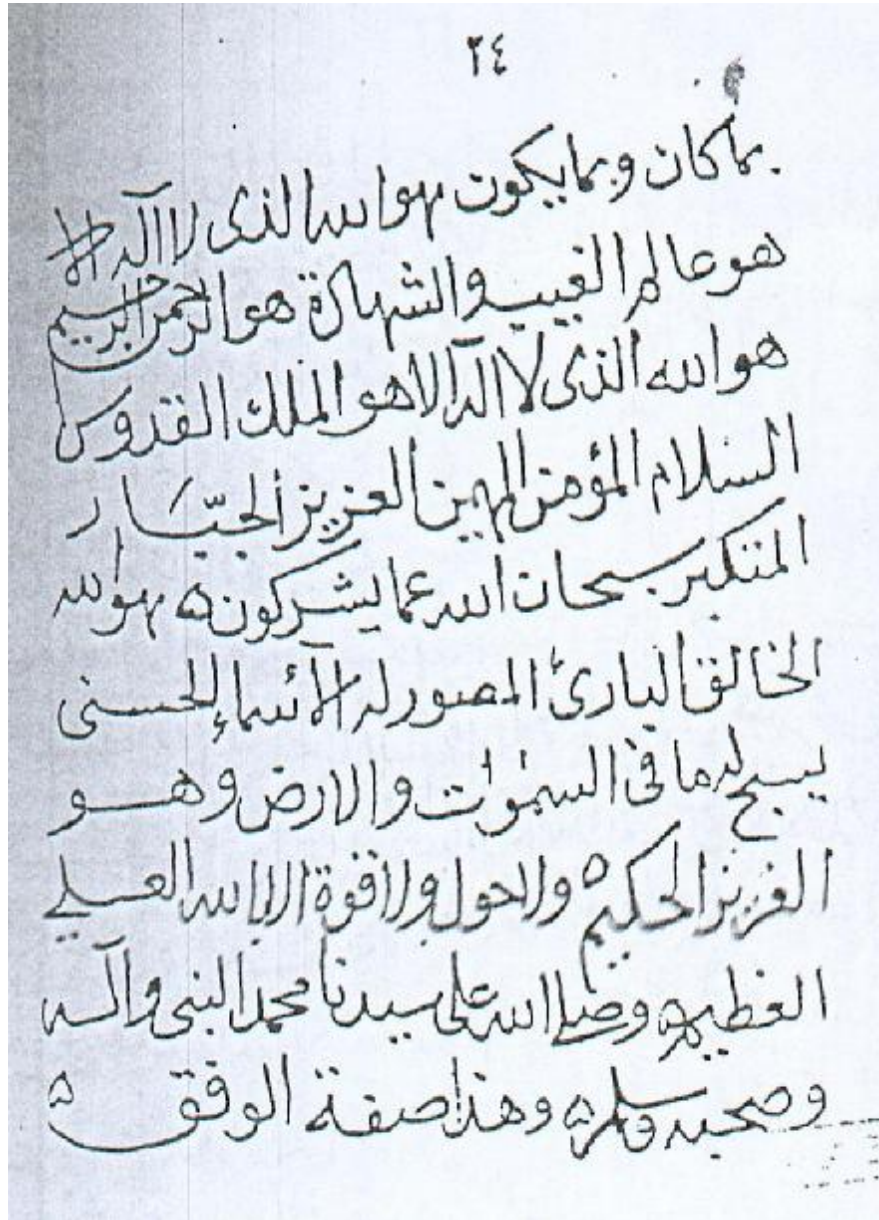 ٢٤
بما كان وبما يكون هو الله الذى لا اله الا
هو عالم الغيب والشهادة هو الرحمن الرحيم
هو الله الذى لا اله الا هو الملك القدوس
السلام المؤمن المهيمن العزيز الجبّار
المتكبر سبحان الله عما يشركون ه هو الله
الخالق البارئ المصور له الأسماء الحسنى
يسبح له ما فى السموات والارض وهو
العزيز الحكيم ه ولا حول ولا قوة الا بالله العلي
العظيم ه وصلى الله على سيدنا محمد النبى وآله
وصحبه وسلم ه وهذا صفة الوفق ه